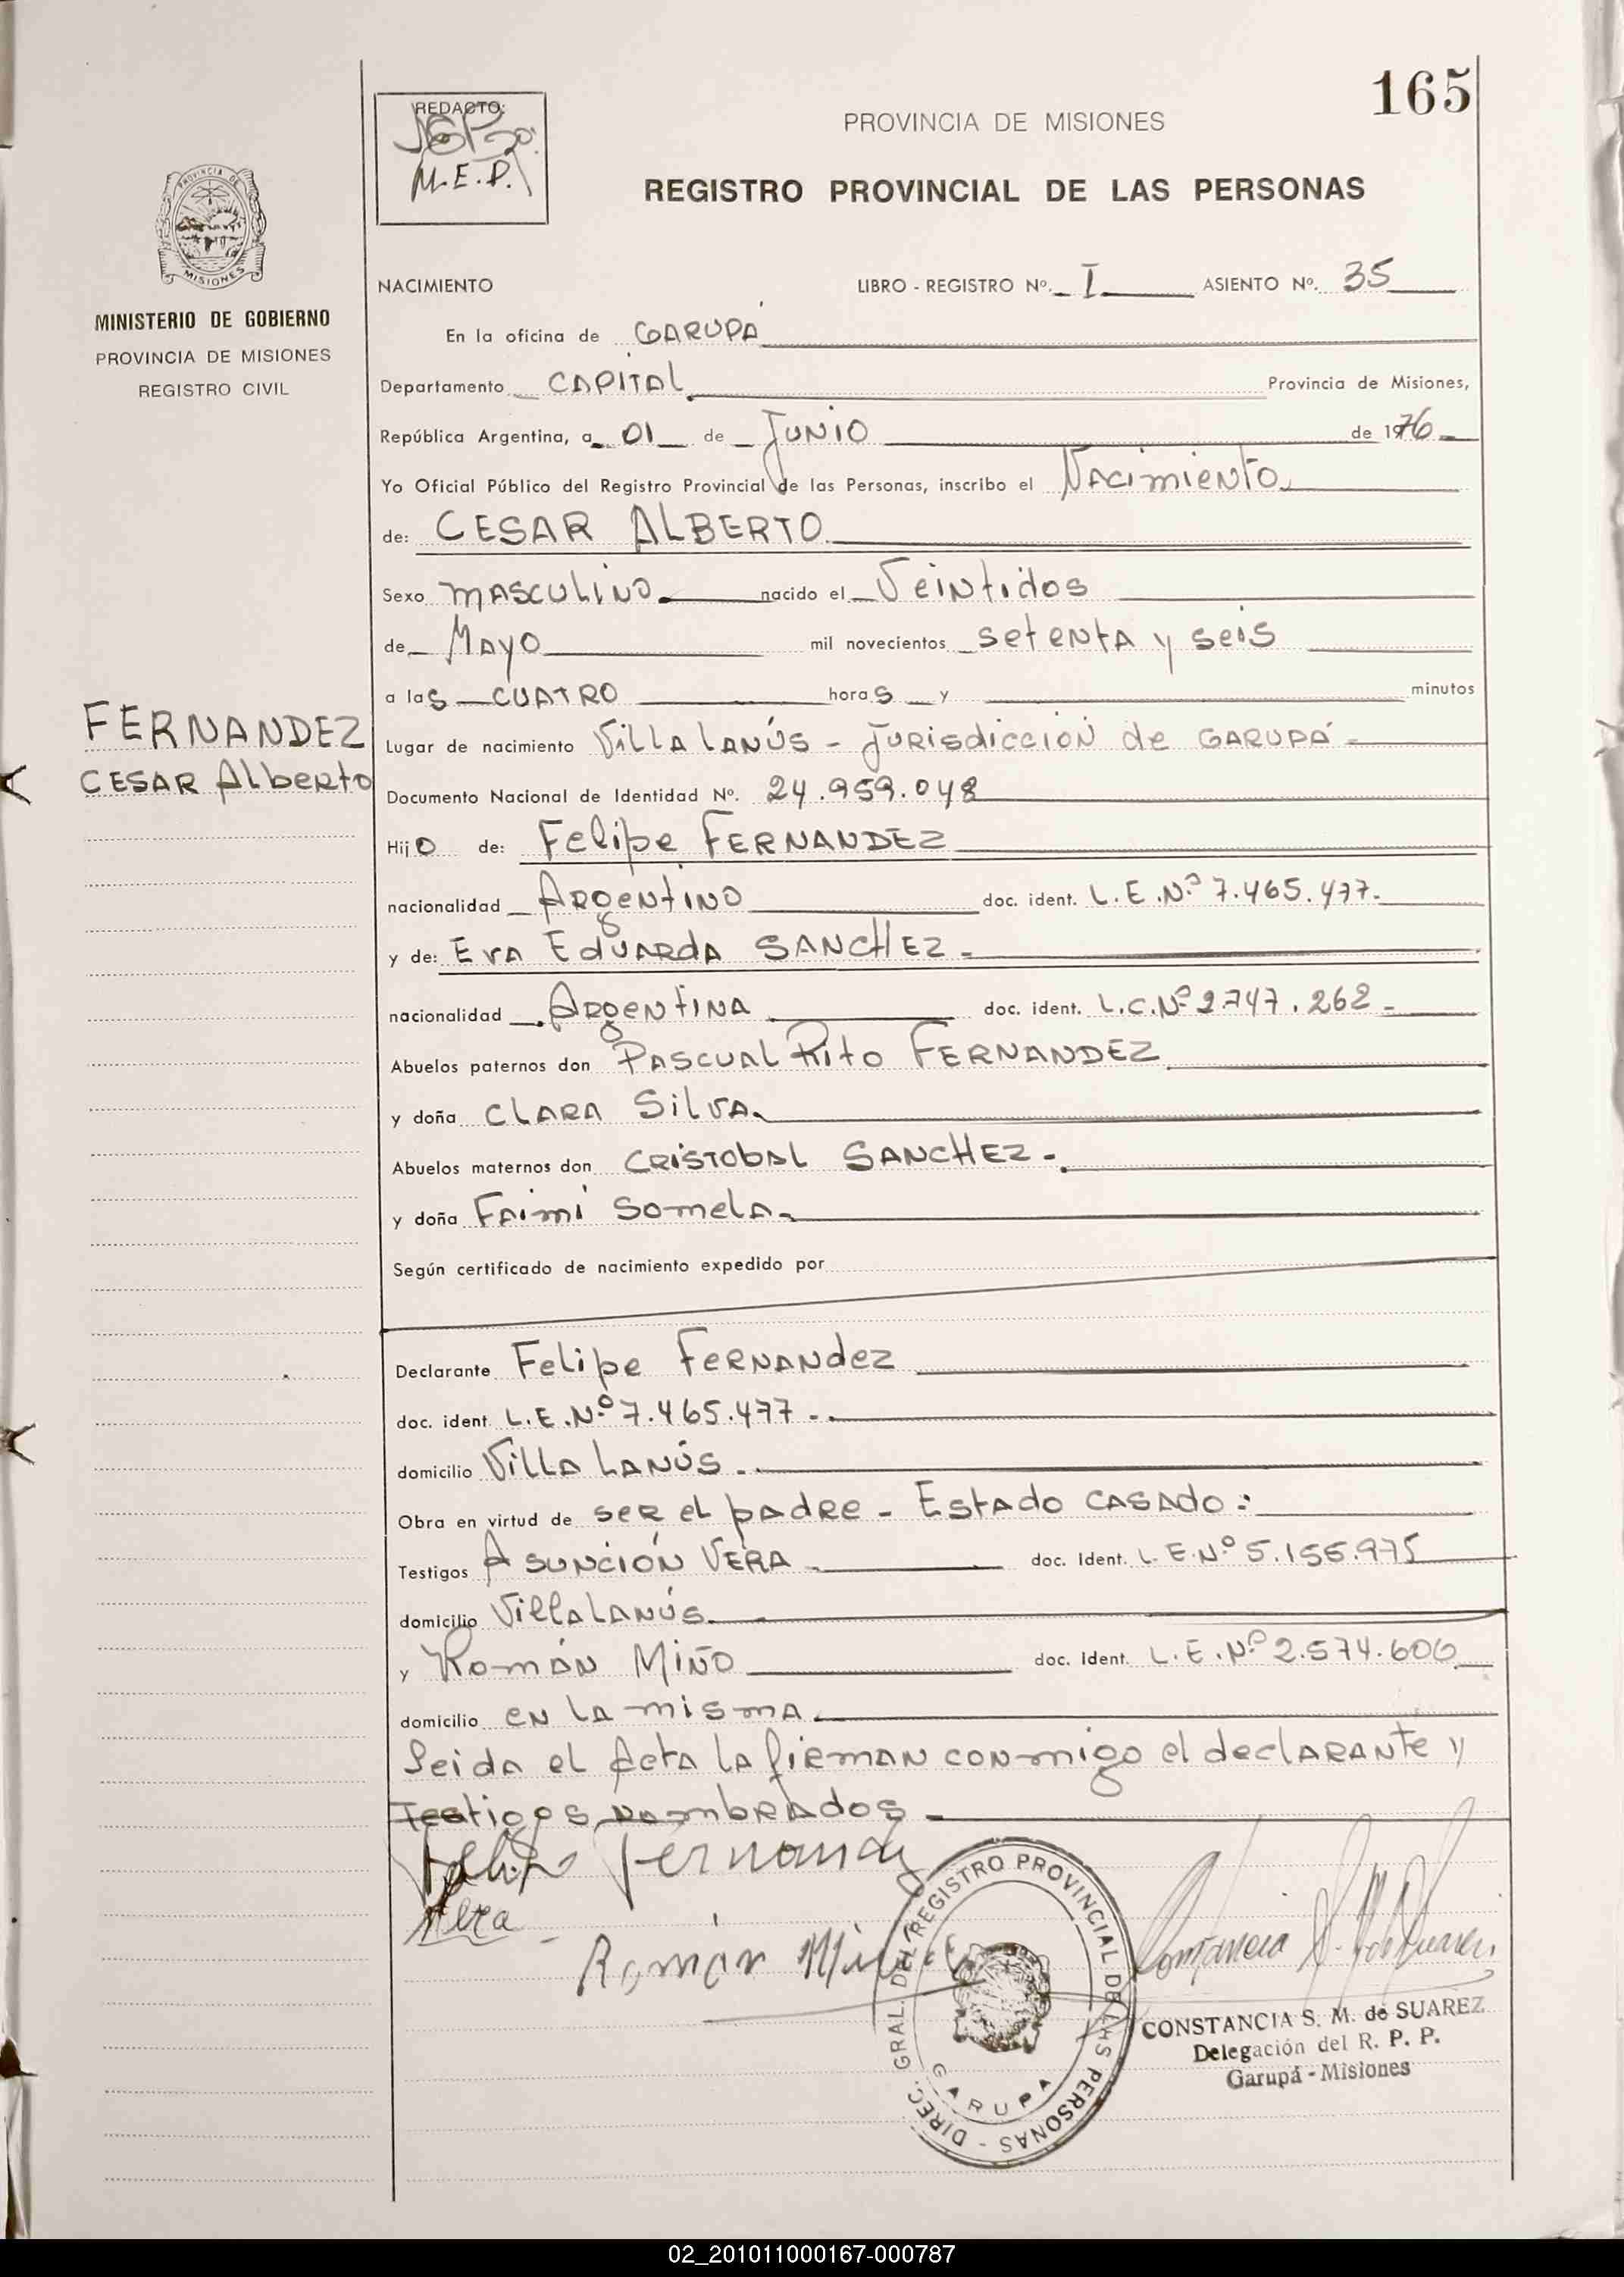 165
REDACTO:
M.E.P.
PROVINCIA DE MISIONES
REGISTRO PROVINCIAL DE LAS PERSONAS
PROVINCIA DE
MISIONES
MINISTERIO DE GOBIERNO
PROVINCIA DE MISIONES
REGISTRO CIVIL
NACIMIENTO LIBRO - REGISTRO Nº. I ASIENTO Nº. 35
En la oficina de GARUPÁ
Departamento CAPITAL Provincia de Misiones,
República Argentina, a 01 de JUNIO de 1976
Yo Oficial Público del Registro Provincial de las Personas, inscribo el Nacimiento
de: CESAR ALBERTO
Sexo masculino nacido el Veintidos
de Mayo mil novecientos setenta y seis
a las CUATRO horas y minutos
FERNANDEZ
CESAR Alberto
Lugar de nacimiento Villa Lanús - Jurisdicción de GARUPÁ -
Documento Nacional de Identidad Nº. 24.959.048
Hijo de: Felipe FERNANDEZ
nacionalidad Argentino doc. ident. L.E.Nº 7.465.477.
y de: Eva Eduarda SANCHEZ -
nacionalidad Argentina doc. ident. L.C.Nº 2.747.262 -
Abuelos paternos don PASCUAL Rito FERNANDEZ
y doña CLARA Silva
Abuelos maternos don CRISTOBAL SANCHEZ.
y doña Faimi Somela
Según certificado de nacimiento expedido por
Declarante Felipe Fernandez
doc. ident. L.E.Nº 7.465.477 -
domicilio Villa Lanús -
Obra en virtud de ser el padre - Estado casado:
Testigos Asunción VERA doc. Ident. L.E.Nº 5.155.975
domicilio Villa Lanús
y Román Miño doc. Ident. L.E.Nº 2.574.606
domicilio en la misma
Leida el Acta la firman conmigo el declarante y
Testigos nombrados -
Felipe Fernandez
Vera
Román Miño
DIREC. GRAL. DEL REGISTRO PROVINCIAL DE LAS PERSONAS -
GARUPA
CONSTANCIA S. M. de SUAREZ
Delegación del R. P. P.
Garupá - Misiones
02_201011000167-000787